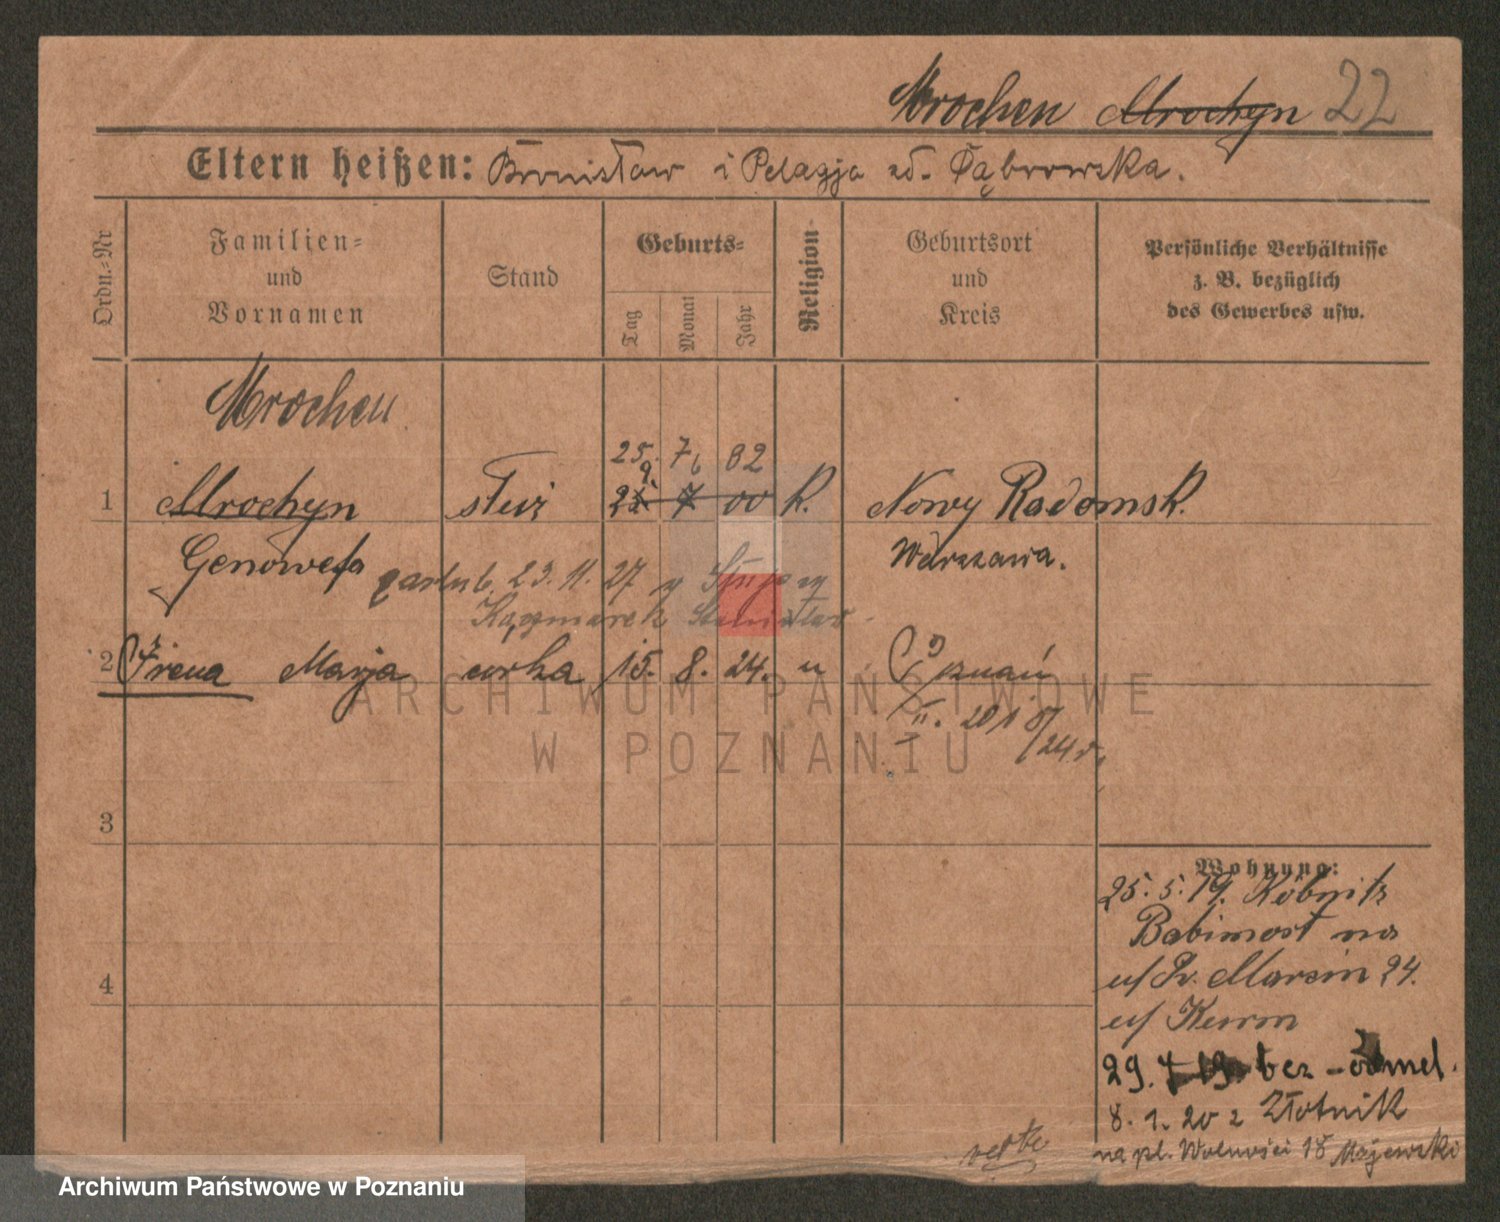 Mrochen Mrochyn 22
Eltern heißen: Bronisław i Pelagja zd. Dąbrowska.
Ordn.-Nr
Familien-
und
Vornamen
Stand
Geburts-
Tag
Monat
Jahr
Religion
Geburtsort
und
Kreis
Persönliche Verhältnisse
z. B. bezüglich
des Gewerbes usw.
Mrochen
25. 7. 02
1 Mrochyn służ 25 7 00 K. Nowy Radomsk.
Genowefa Warszawa.
zaślub. 23. 11. 27
Kaczmarek Stanisław
2 Irena Marja córka 15. 8. 24. " Poznań
II. 201 8/24 r.
3
4
Wohnung:
25. 5. 19. Köbnitz
Babimost na
Św. Marcin 24.
29. 7 19 bez odmel.
8. 1. 20 z Złotnik
na pl. Wolności 18 Majewski
verte
ARCHIWUM PAŃSTWOWE
W POZNANIU
Archiwum Państwowe w Poznaniu